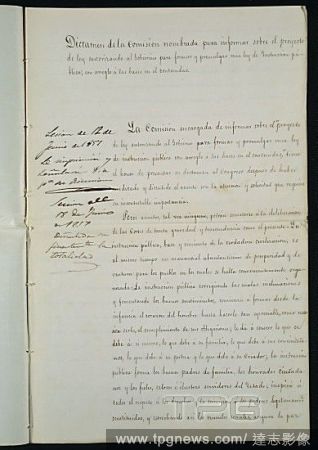 Dictamen de la Comision nombrada para informar sobre el proyecto
de ley autorizando al Gobierno para formar y promulgar una ley de Instruccion pú-
blica, con arreglo a las bases en él contenidas.
Sesion de 12 de
Junio de 1857
Se imprimirá y
señalará día
pª su discusion
Sesion del
15 de Junio
de 1857
totalidad
La Comision encargada de informar sobre el proyecto
de ley autorizando al Gobierno para formar y promulgar una ley
de instruccion pública con arreglo a las bases en él contenidas, tiene
el honor de presentar su dictamen al Congreso despues de haber
y discutido el asunto con la atencion y que requiere
su incontestable importancia.
Pocos asuntos, tal vez ninguno, pueden someterse a la deliberacion
de las Cortes de tanta gravedad y trascendencia como el presente. La
instruccion pública, base y cimiento de la verdadera civilizacion, es
al mismo tiempo un manantial de prosperidad y de
ventura para los pueblos en los cuales se halla convenientemente orga-
nizada. La instruccion pública corrigiendo las malas inclinaciones
y fomentando los buenos sentimientos, comienza a formar desde la
infancia el corazon del hombre hasta hacerle
el cumplimiento de sus obligaciones; le dá a conocer lo que se
debe a sí mismo, lo que debe a su familia, lo que debe a sus semejan-
tes, lo que debe a su patria y lo que debe a su Criador; la instruccion
pública forma los buenos padres de familia, los honrados ciudada-
nos y los fieles, celosos e ilustres servidores del Estado; inspira a
todos el respeto a los poderes legítimamente
constituidos, y la paz
TPG
www.tpgnews.com / 達志影像